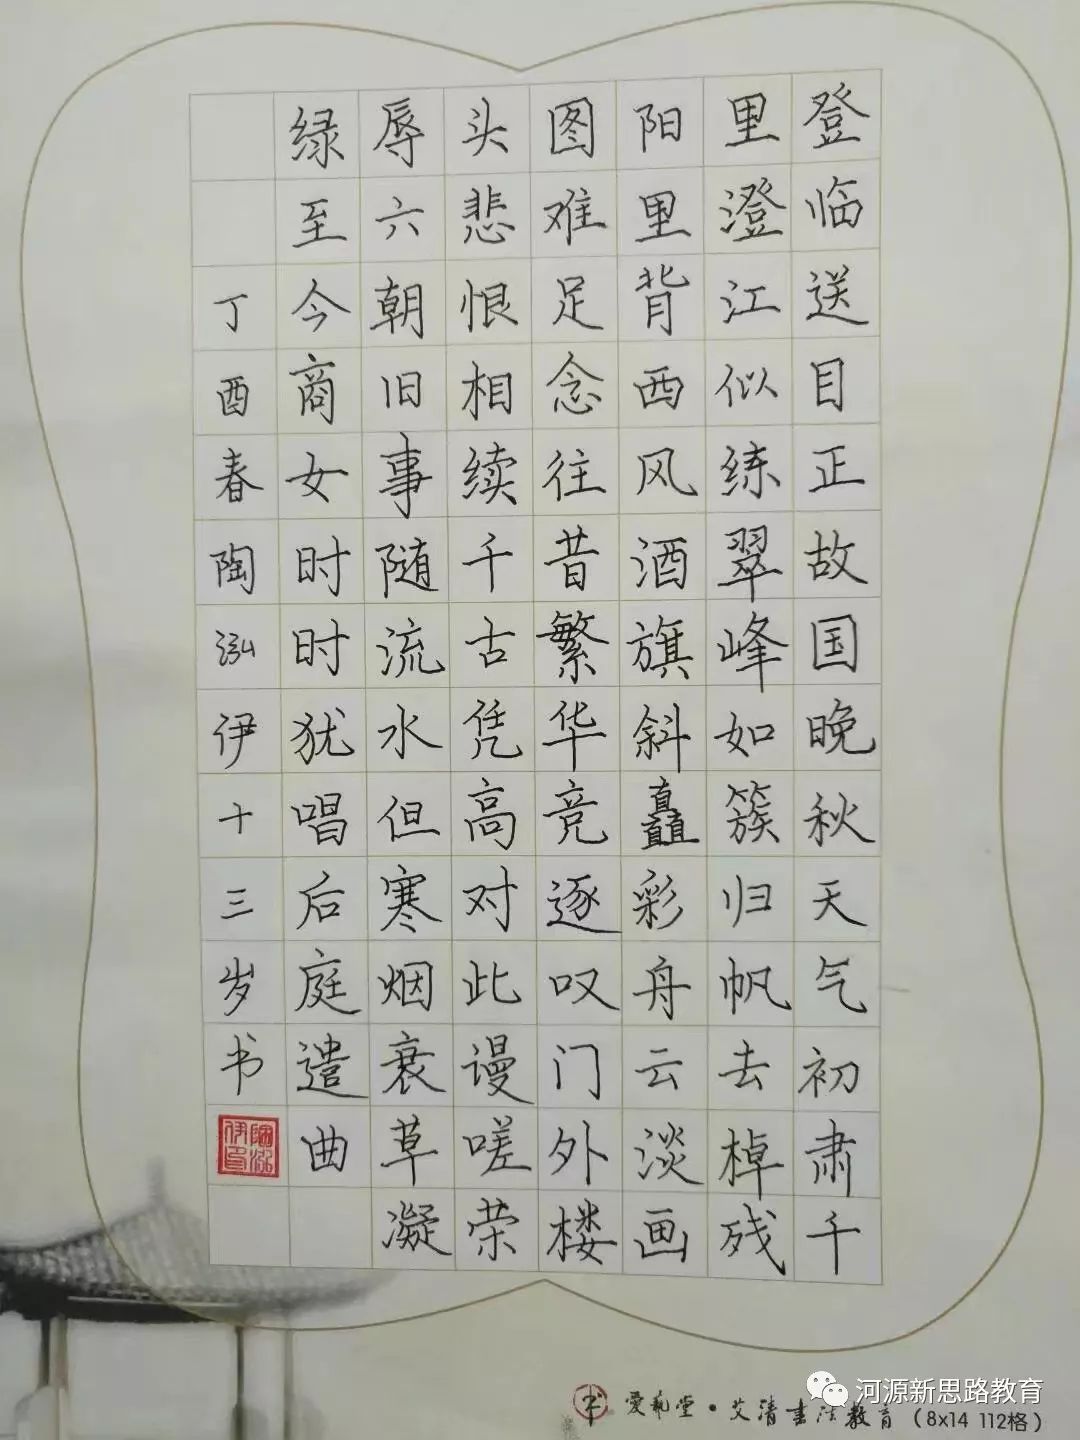 登临送目正故国晚秋天气初肃千
里澄江似练翠峰如簇归帆去棹残
阳里背西风酒旗斜矗彩舟云淡画
图难足念往昔繁华竞逐叹门外楼
头悲恨相续千古凭高对此谩嗟荣
辱六朝旧事随流水但寒烟衰草凝
绿至今商女时时犹唱后庭遣曲
丁酉春陶泓伊十三岁书
陶泓伊印
河源新思路教育
爱艺堂·艾清书法教育(8x14 112格)